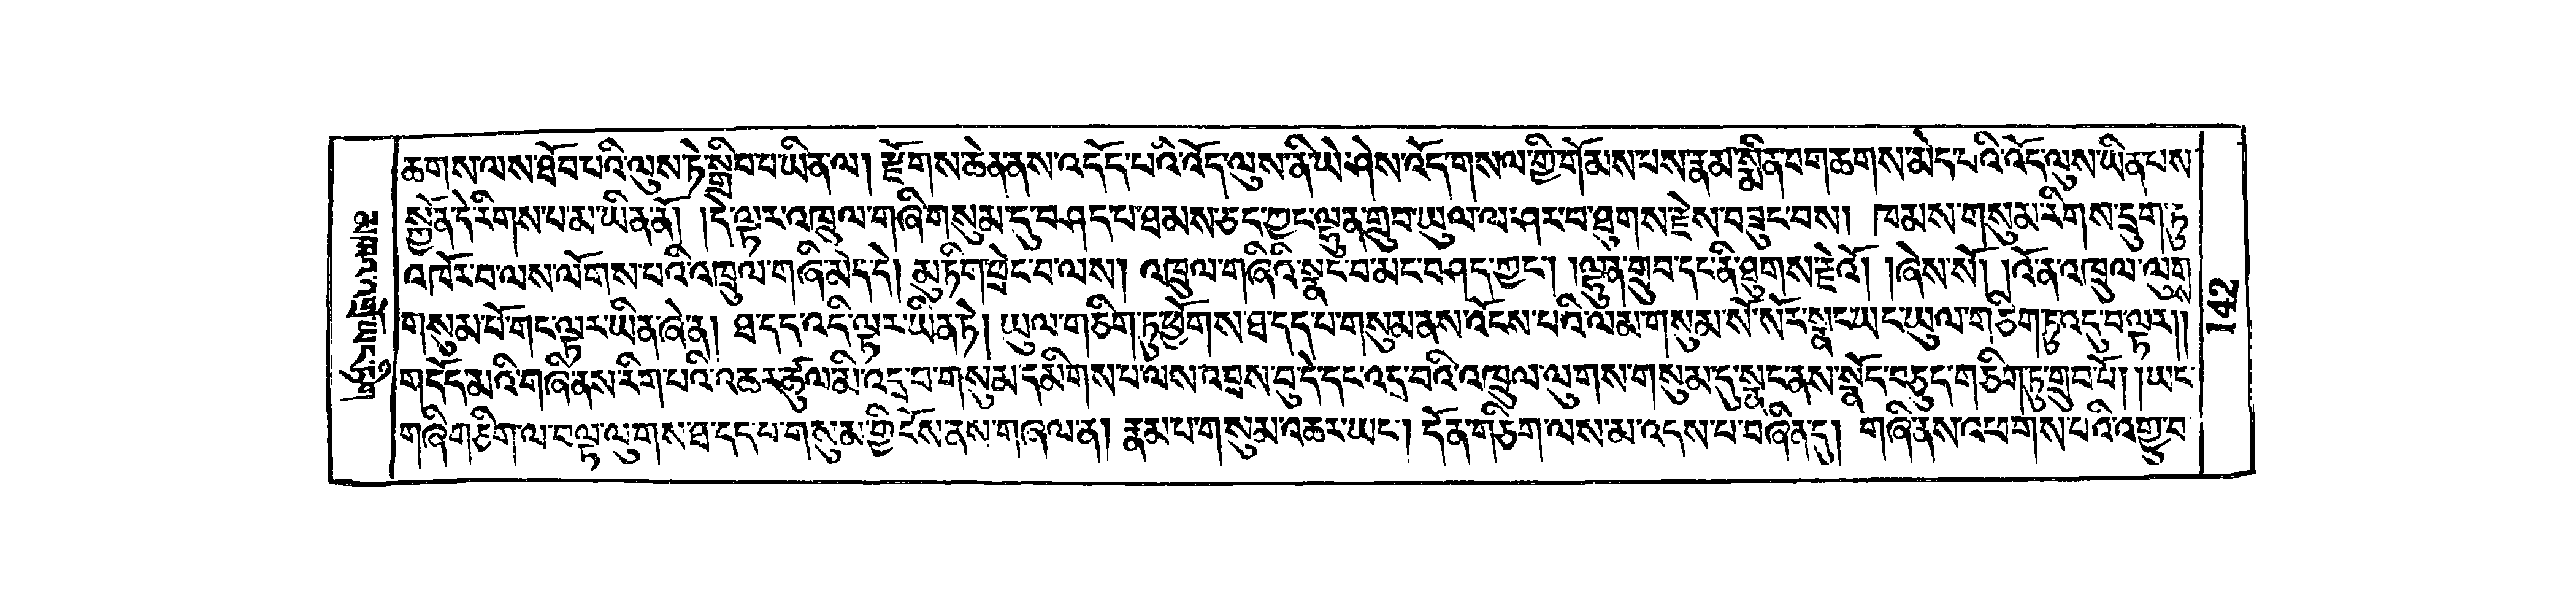 ཆགས་ལས་ཐོབ་པའི་ལུས་ཏེ་སྒྲིབ་པ་ཡིན་ལ། རྫོགས་ཆེན་ནས་འདོད་པའི་འོད་ལུས་ནི་ཡེ་ཤེས་འོད་གསལ་གྱི་གོམས་པས་རྣམ་སྨིན་བག་ཆགས་མེད་པའི་འོད་ལུས་ཡིན་པས་
སྐྱོན་དེ་རིགས་པ་མ་ཡིན་ནོ། །དེ་ལྟར་འཁྲུལ་གཞི་གསུམ་དུ་བཤད་པ་ཐམས་ཅད་ཀྱང་ལྷུན་གྲུབ་ཡུལ་ལ་ཤར་བ་ཐུགས་རྗེས་བཟུང་བས། ཁམས་གསུམ་རིགས་དྲུག་ཏུ་
འཁོར་བ་ལས་ལོགས་པའི་འཁྲུལ་གཞི་མེད་དེ། མུ་ཏིག་ཕྲེང་བ་ལས། འཁྲུལ་གཞིའི་སྣང་བ་མང་བཤད་ཀྱང་། །ལྷུན་གྲུབ་དང་ནི་ཐུགས་རྗེའོ། །ཞེས་སོ། །འོ་ན་འཁྲུལ་ལུགས་
གསུམ་པོ་གང་ལྟར་ཡིན་ཞེ་ན། ཐ་དད་འདི་ལྟར་ཡིན་ཏེ། ཡུལ་གཅིག་ཏུ་ཕྱོགས་ཐ་དད་པ་གསུམ་ནས་འོངས་པའི་ལམ་གསུམ་སོ་སོར་སྣང་ཡང་ཡུལ་གཅིག་ཏུ་འདུ་བ་ལྟར།།
གདོད་མའི་གཞི་ནས་རིག་པའི་འཆར་ཚུལ་མི་འདྲ་བ་གསུམ་དམིགས་པ་ལས་འབྲས་བུ་དེ་དང་འདྲ་བའི་འཁྲུལ་ལུགས་གསུམ་དུ་སྣང་ནས་སྣོད་བཅུད་གཅིག་ཏུ་གྲུབ་པོ། །ཡང་
གཞི་གཅིག་ལ་བལྟ་ལུགས་ཐ་དད་པ་གསུམ་གྱི་ངོས་ནས་གཞལ་ན། རྣམ་པ་གསུམ་འཆར་ཡང་། དོན་གཅིག་ལས་མ་འདས་པ་བཞིན་དུ། གཞི་ནས་འཕགས་པའི་འགྱུ་བ་